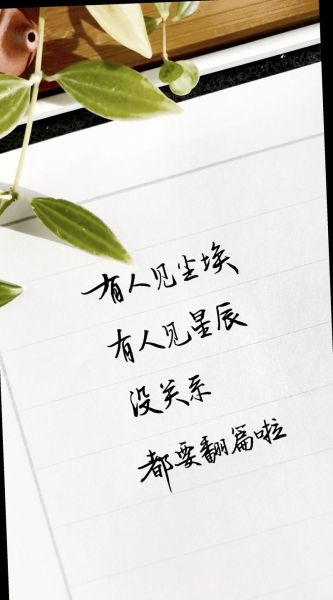 有人见尘埃
有人见星辰
没关系
都要翻篇啦